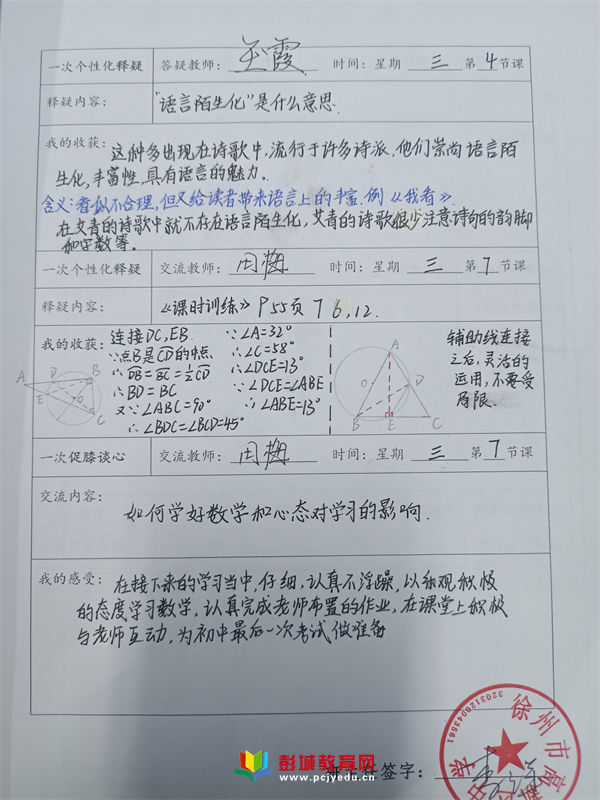 一次个性化释疑 答疑教师: 王霞 时间: 星期 三 第 4 节课
释疑内容: "语言陌生化"是什么意思.
我的收获: 这种多出现在诗歌中,流行于许多诗派,他们崇尚语言陌
生化,丰富性,具有语言的魅力.
含义:看似不合理,但又给读者带来语言上的丰富.例《我看》.
在艾青的诗歌中就不存在语言陌生化,艾青的诗歌很少注意诗句的韵脚
和字数等。
一次个性化释疑 交流教师: 田梅 时间: 星期 三 第 7 节课
释疑内容: 《课时训练》P55页 7 6,12.
我的收获: 连接DC,EB
∵点B是CD的中点
∴DB=BC=½CD
∴BD=BC
又∵∠ABC=90°
∴∠BDC=∠BCD=45°
∵∠A=32°
∴∠C=58°
∴∠DCE=13°
∵∠DCE=∠ABE
∴∠ABE=13°
A D B E O C
A O D B E C
辅助线连接
之后,灵活的
运用,不要受
局限.
一次促膝谈心 交流教师: 田梅 时间: 星期 三 第 7 节课
交流内容:
如何学好数学和心态对学习的影响.
我的感受: 在接下来的学习当中,仔细,认真不浮躁,以乐观积极
的态度学习数学,认真完成老师布置的作业,在课堂上积极
与老师互动,为初中最后一次考试做准备
徐州市
3203120043561
班主任签字:
彭城教育网
www.pcjyedu.cn